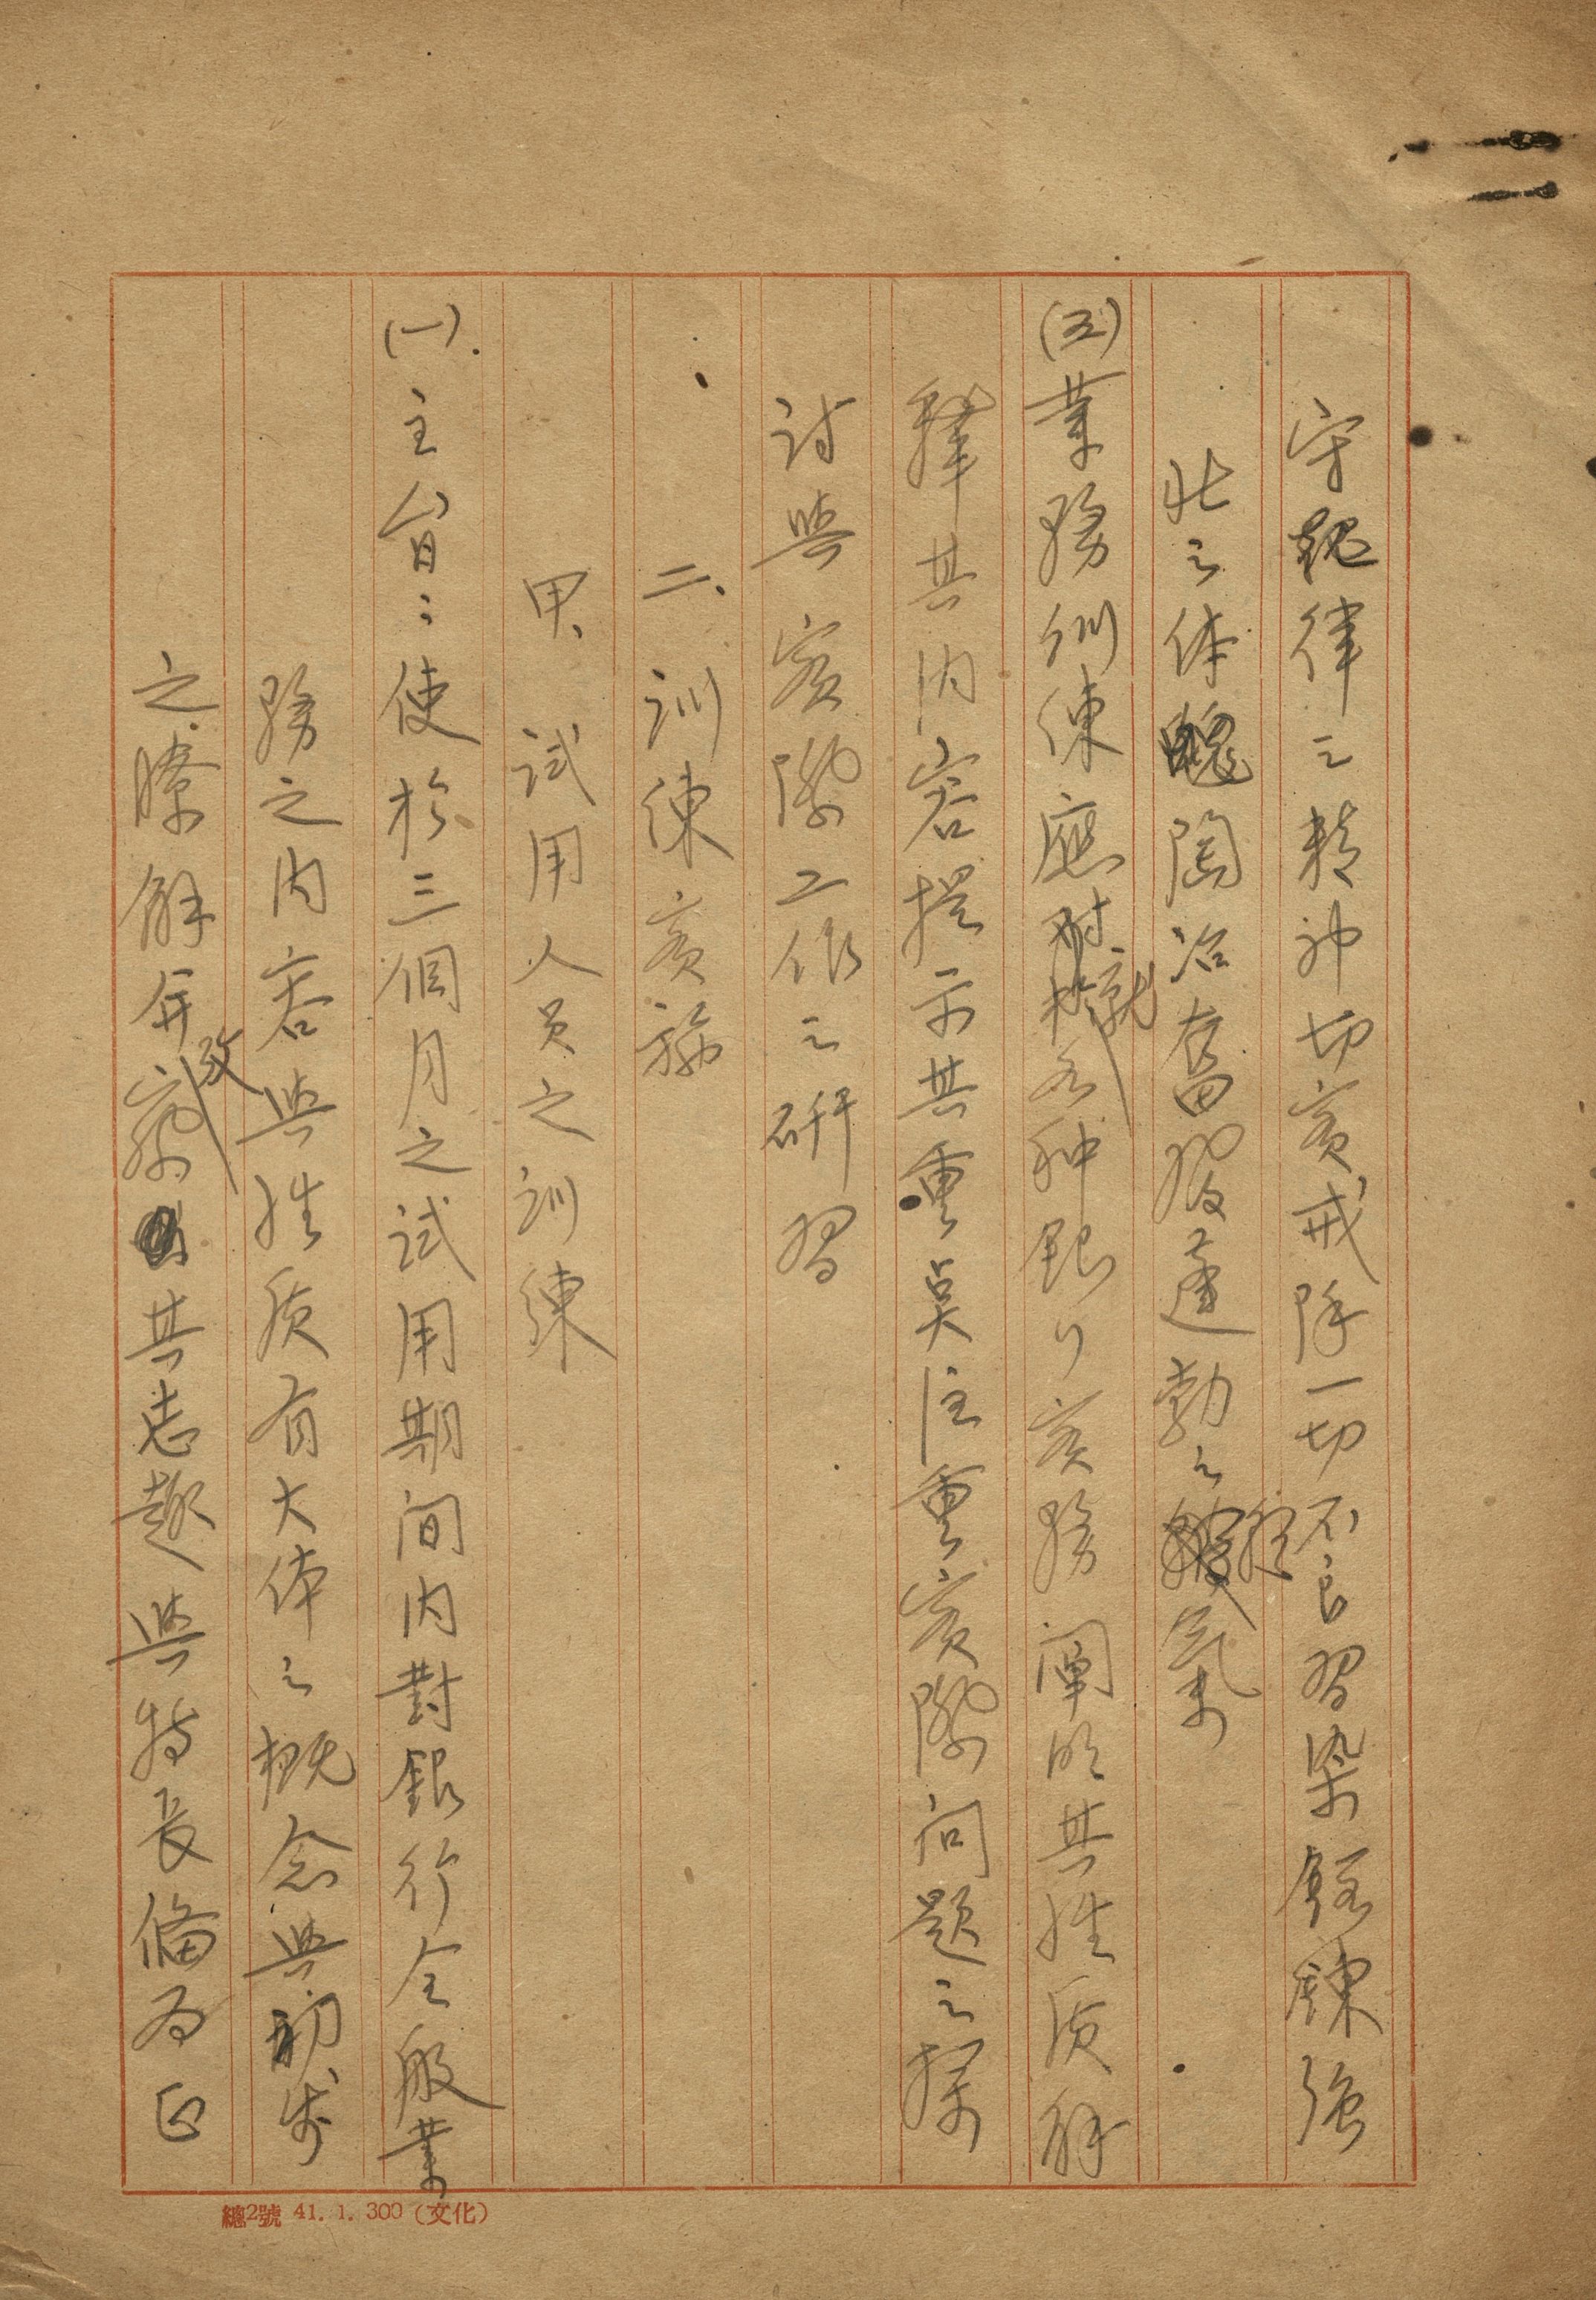 守規律之精神切實戒除一切不良習染鍛鍊強
壯之体魄陶冶奮發蓬勃之朝氣
(五)業務訓練應就各种銀行实務闡明其性质解
釋其内容提示其重奌注重實際问题之探
討與實際工作之研習
二、訓練實施
甲、試用人员之訓練
(一).主旨:使於三個月之試用期间内對銀行全般業
務之内容與性质有大体之概念與初步
之瞭解并攷察其志趣與特長俻为正
總2號 41. 1. 300 (文化)